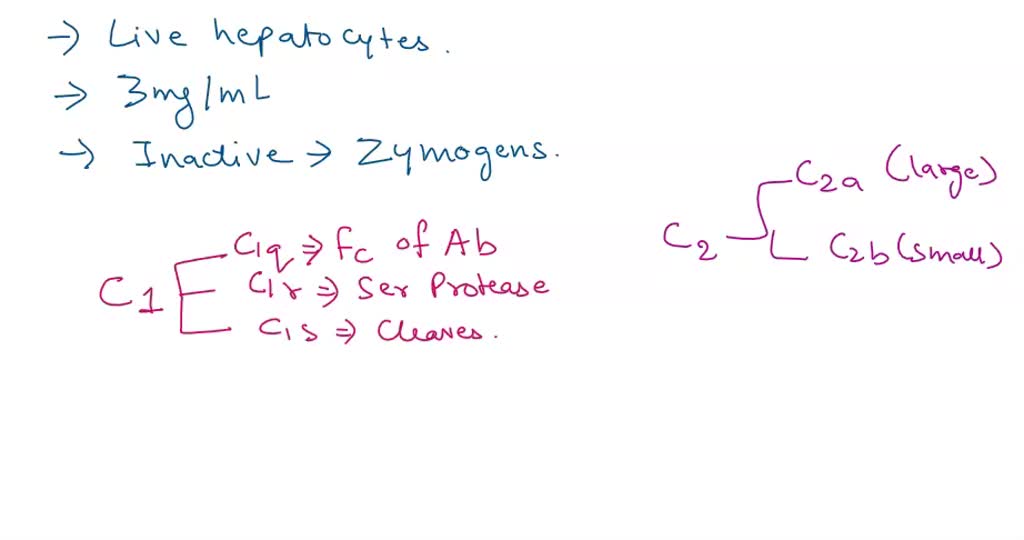 → Live hepatocytes.
→ 3mg/mL
→ Inactive → Zymogens.
C1
C1q ⇒ Fc of Ab
C1r ⇒ Ser Protease
C1s ⇒ Cleaves.
C2
C2a (large)
C2b (small)